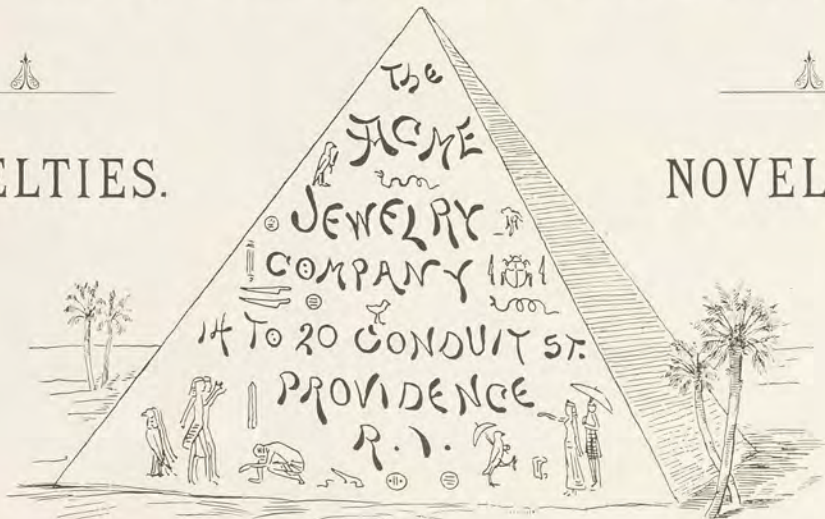 ELTIES.
NOVEL
The
ACME
JEWELRY
COMPANY
14 TO 20 CONDUIT ST.
PROVIDENCE
R.I.